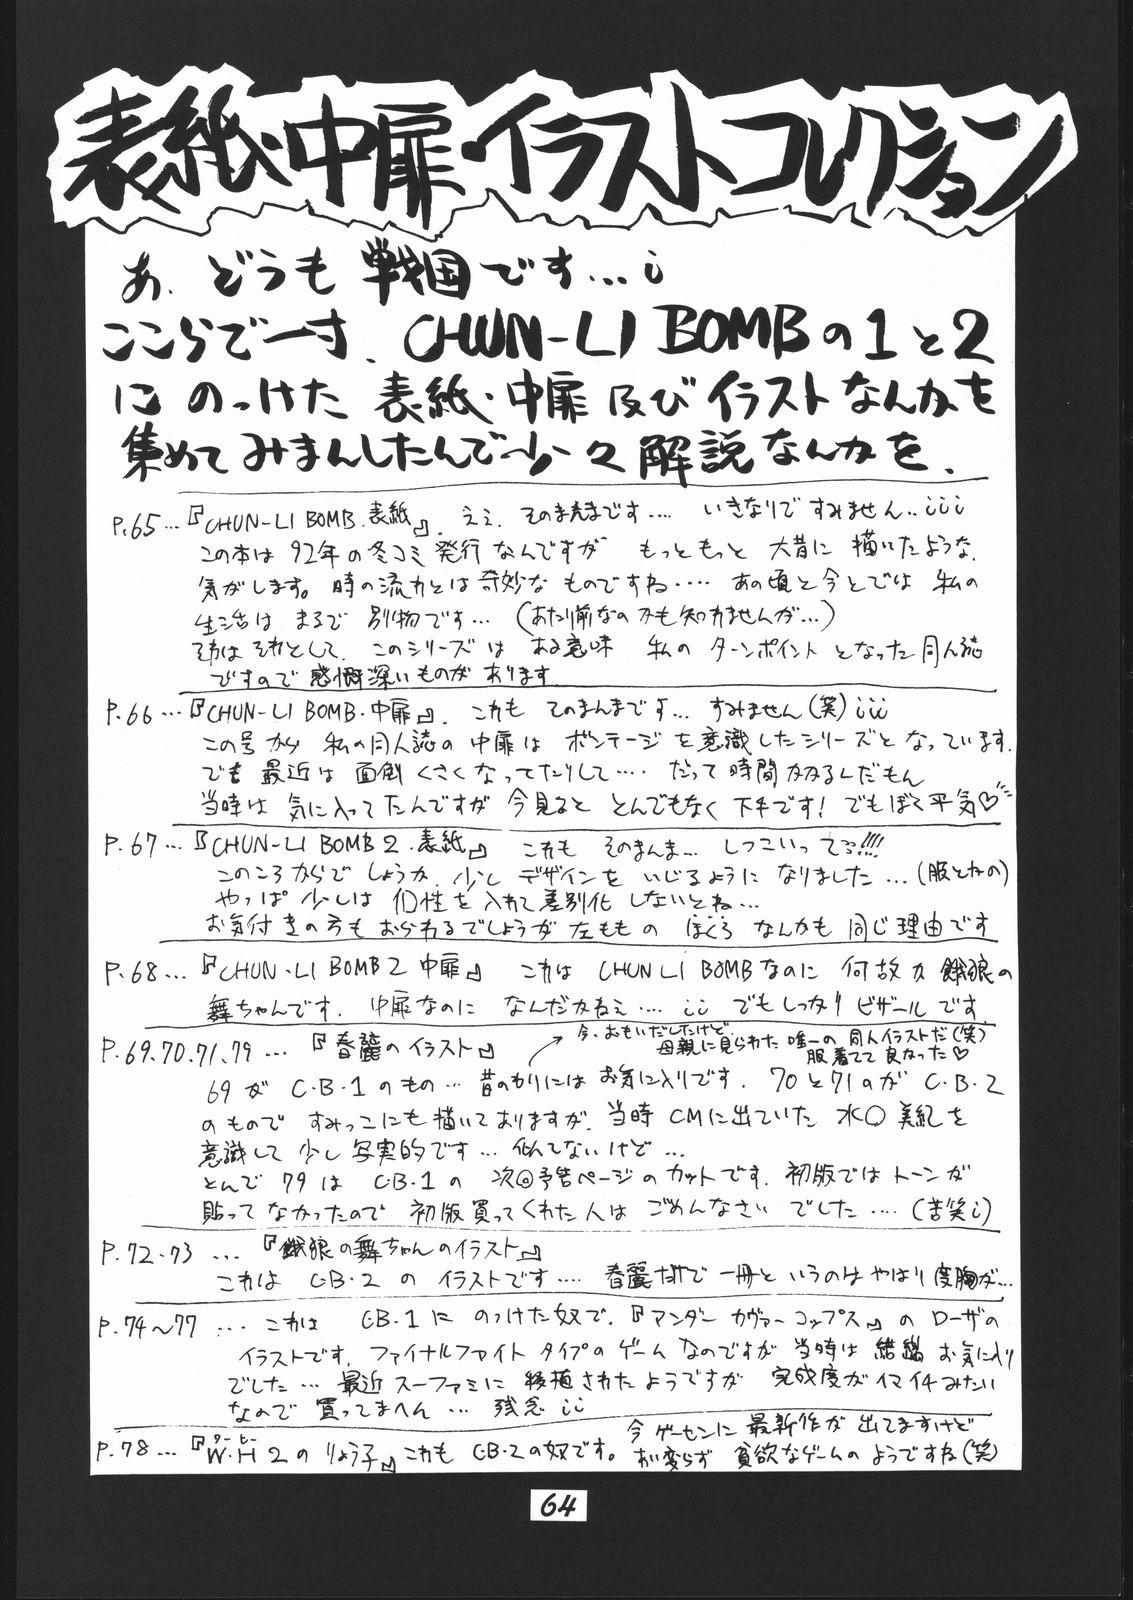 表紙・中扉・イラストコレクション
あ、どうも戦国です…i
ここらで一寸、CHUN-LI BOMBの1と2
にのっけた表紙・中扉及びイラストなんかを
集めてみまんしたんで少々解説なんかを、
P.65…『CHUN-LI BOMB・表紙』、ええ、そのまんまです…. いきなりですみません..iii
この本は92年の冬コミ発行なんですが もっともっと大昔に描いたような、
気がします。時の流れとは奇妙なものですね…. あの頃と今とでは私の
生活はまるで別物です…(あたり前なのかも知れませんが…)
それはそれとして、このシリーズはある意味 私のターンポイントとなった同人誌
ですので感慨深いものがあります
P.66…『CHUN-LI BOMB・中扉』、これもそのまんまです… すみません(笑)iii
この号から私の同人誌の中扉はボンテージを意識したシリーズとなっています.
でも最近は面倒くさくなってたりして…. だって時間かかるんだもん
当時は気に入ってたんですが今見るととんでもなく下手です! でもぼく平気♡
P.67…『CHUN-LI BOMB2・表紙』 これもそのまんま… しつこいってっ!!!!
このころからでしょうか、少しデザインをいじるようになりました…(服とかの)
やっぱ少しは個性を入れて差別化しないとね…
お気付きの方もおられるでしょうが左ももの ほくろ なんかも同じ理由です
P.68…『CHUN-LI BOMB2 中扉』 これはCHUN LI BOMBなのに何故か餓狼の
舞ちゃんです. 中扉なのになんだかねぇ…. ii でもしっかりビザールです
P.69.70.71.79…『春麗のイラスト』
今、おもいだしたけど、
母親に見られた唯一の同人イラストだ(笑)
服着てて良かった♡
69がC・B・1のもの… 昔のわりにはお気に入りです. 70と71のがC・B・2
のものですみっこにも描いておりますが、当時CMに出ていた水〇美紀を
意識して少し写実的です… 似てないけど…
とんで79はC・B・1の次回予告ページのカットです. 初版ではトーンが
貼ってなかったので初版買ってくれた人はごめんなさいでした….(苦笑i)
P.72・73…『餓狼の舞ちゃんのイラスト』
これはC・B・2のイラストです…. 春麗だけで一冊というのはやはり度胸が…
P.74〜77…これはC・B・1にのっけた奴で、『アンダーカヴァーコップス』のローザの
イラストです. ファイナルファイトタイプのゲームなのですが当時は結構お気に入り
でした… 最近スーファミに移植されたようですが完成度がイマイチみたい
なので買ってまへん… 残念ii
P.78…『W・H2のりょう子』これもC・B・2の奴です。
ワーヒー
今ゲーセンに最新作が出てますけど
相変らず貪欲なゲームのようですね(笑)
64